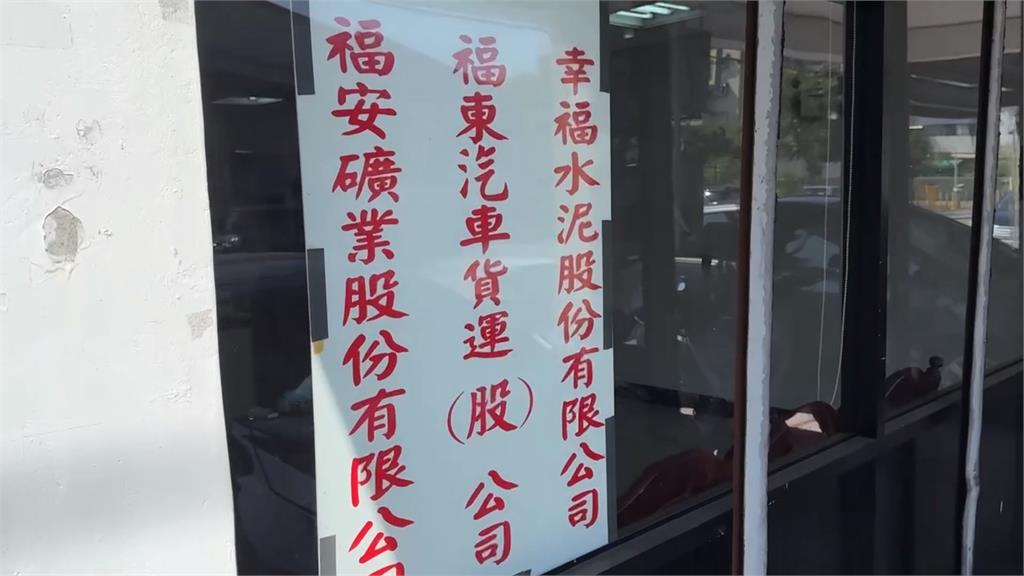 幸福水泥股份有限公司
福東汽車貨運（股）公司
福安礦業股份有限公司